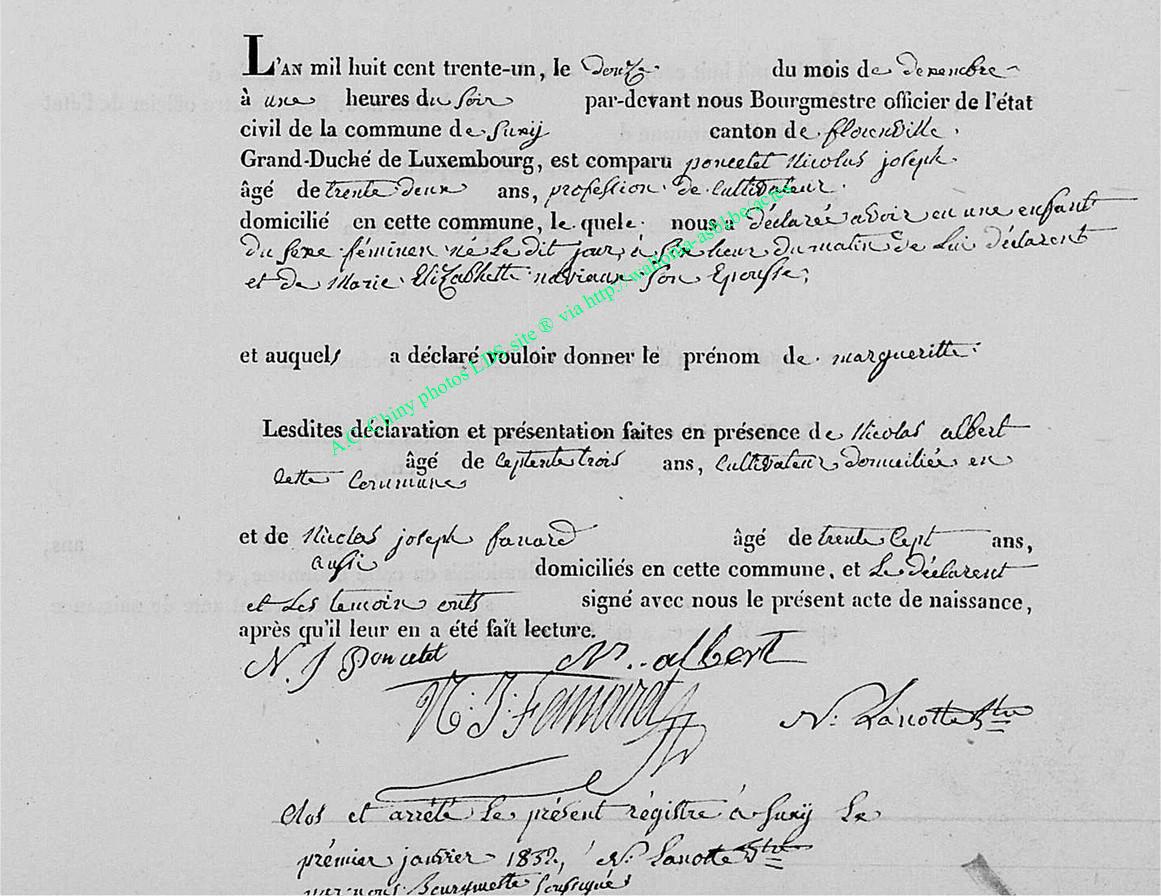 L'AN mil huit cent trente-un, le douze du mois de decenbre
à une heures du soir par-devant nous Bourgmestre officier de l'état
civil de la commune de Suxÿ canton de florenville.
Grand-Duché de Luxembourg, est comparu poncelet Nicolas joseph
âgé de trente deux ans, profession de Cultivateur.
domicilié en cette commune, le quele nous a déclarée avoir eu une enfant
du sexe féminen né Le dit jour, à six heur du matin de Lui déclarent
et de Marie Elizabhette naviaux son Epousse;
et auquels a déclaré vouloir donner le prénom de margueritte
Lesdites déclaration et présentation faites en présence de Nicolas albert
âgé de ceptente trois ans, Cultivateur domiciliée en
Cette Commune
et de Nicolas joseph âgé de trente cept ans,
aussi domiciliés en cette commune, et Le déclarent
et Les temoin onts signé avec nous le présent acte de naissance,
après qu'il leur en a été fait lecture.
N. J Poncelet N.. albert
N: J: N: Lanotte
Clos et arrêté Le présent régistre à Suxÿ Le
prémier janvier 1832, N: Lanotte
par nous Bourgmette Soussigné
A.C. Chiny photos EDS site ® via http://wallonia-asbl.be/actes